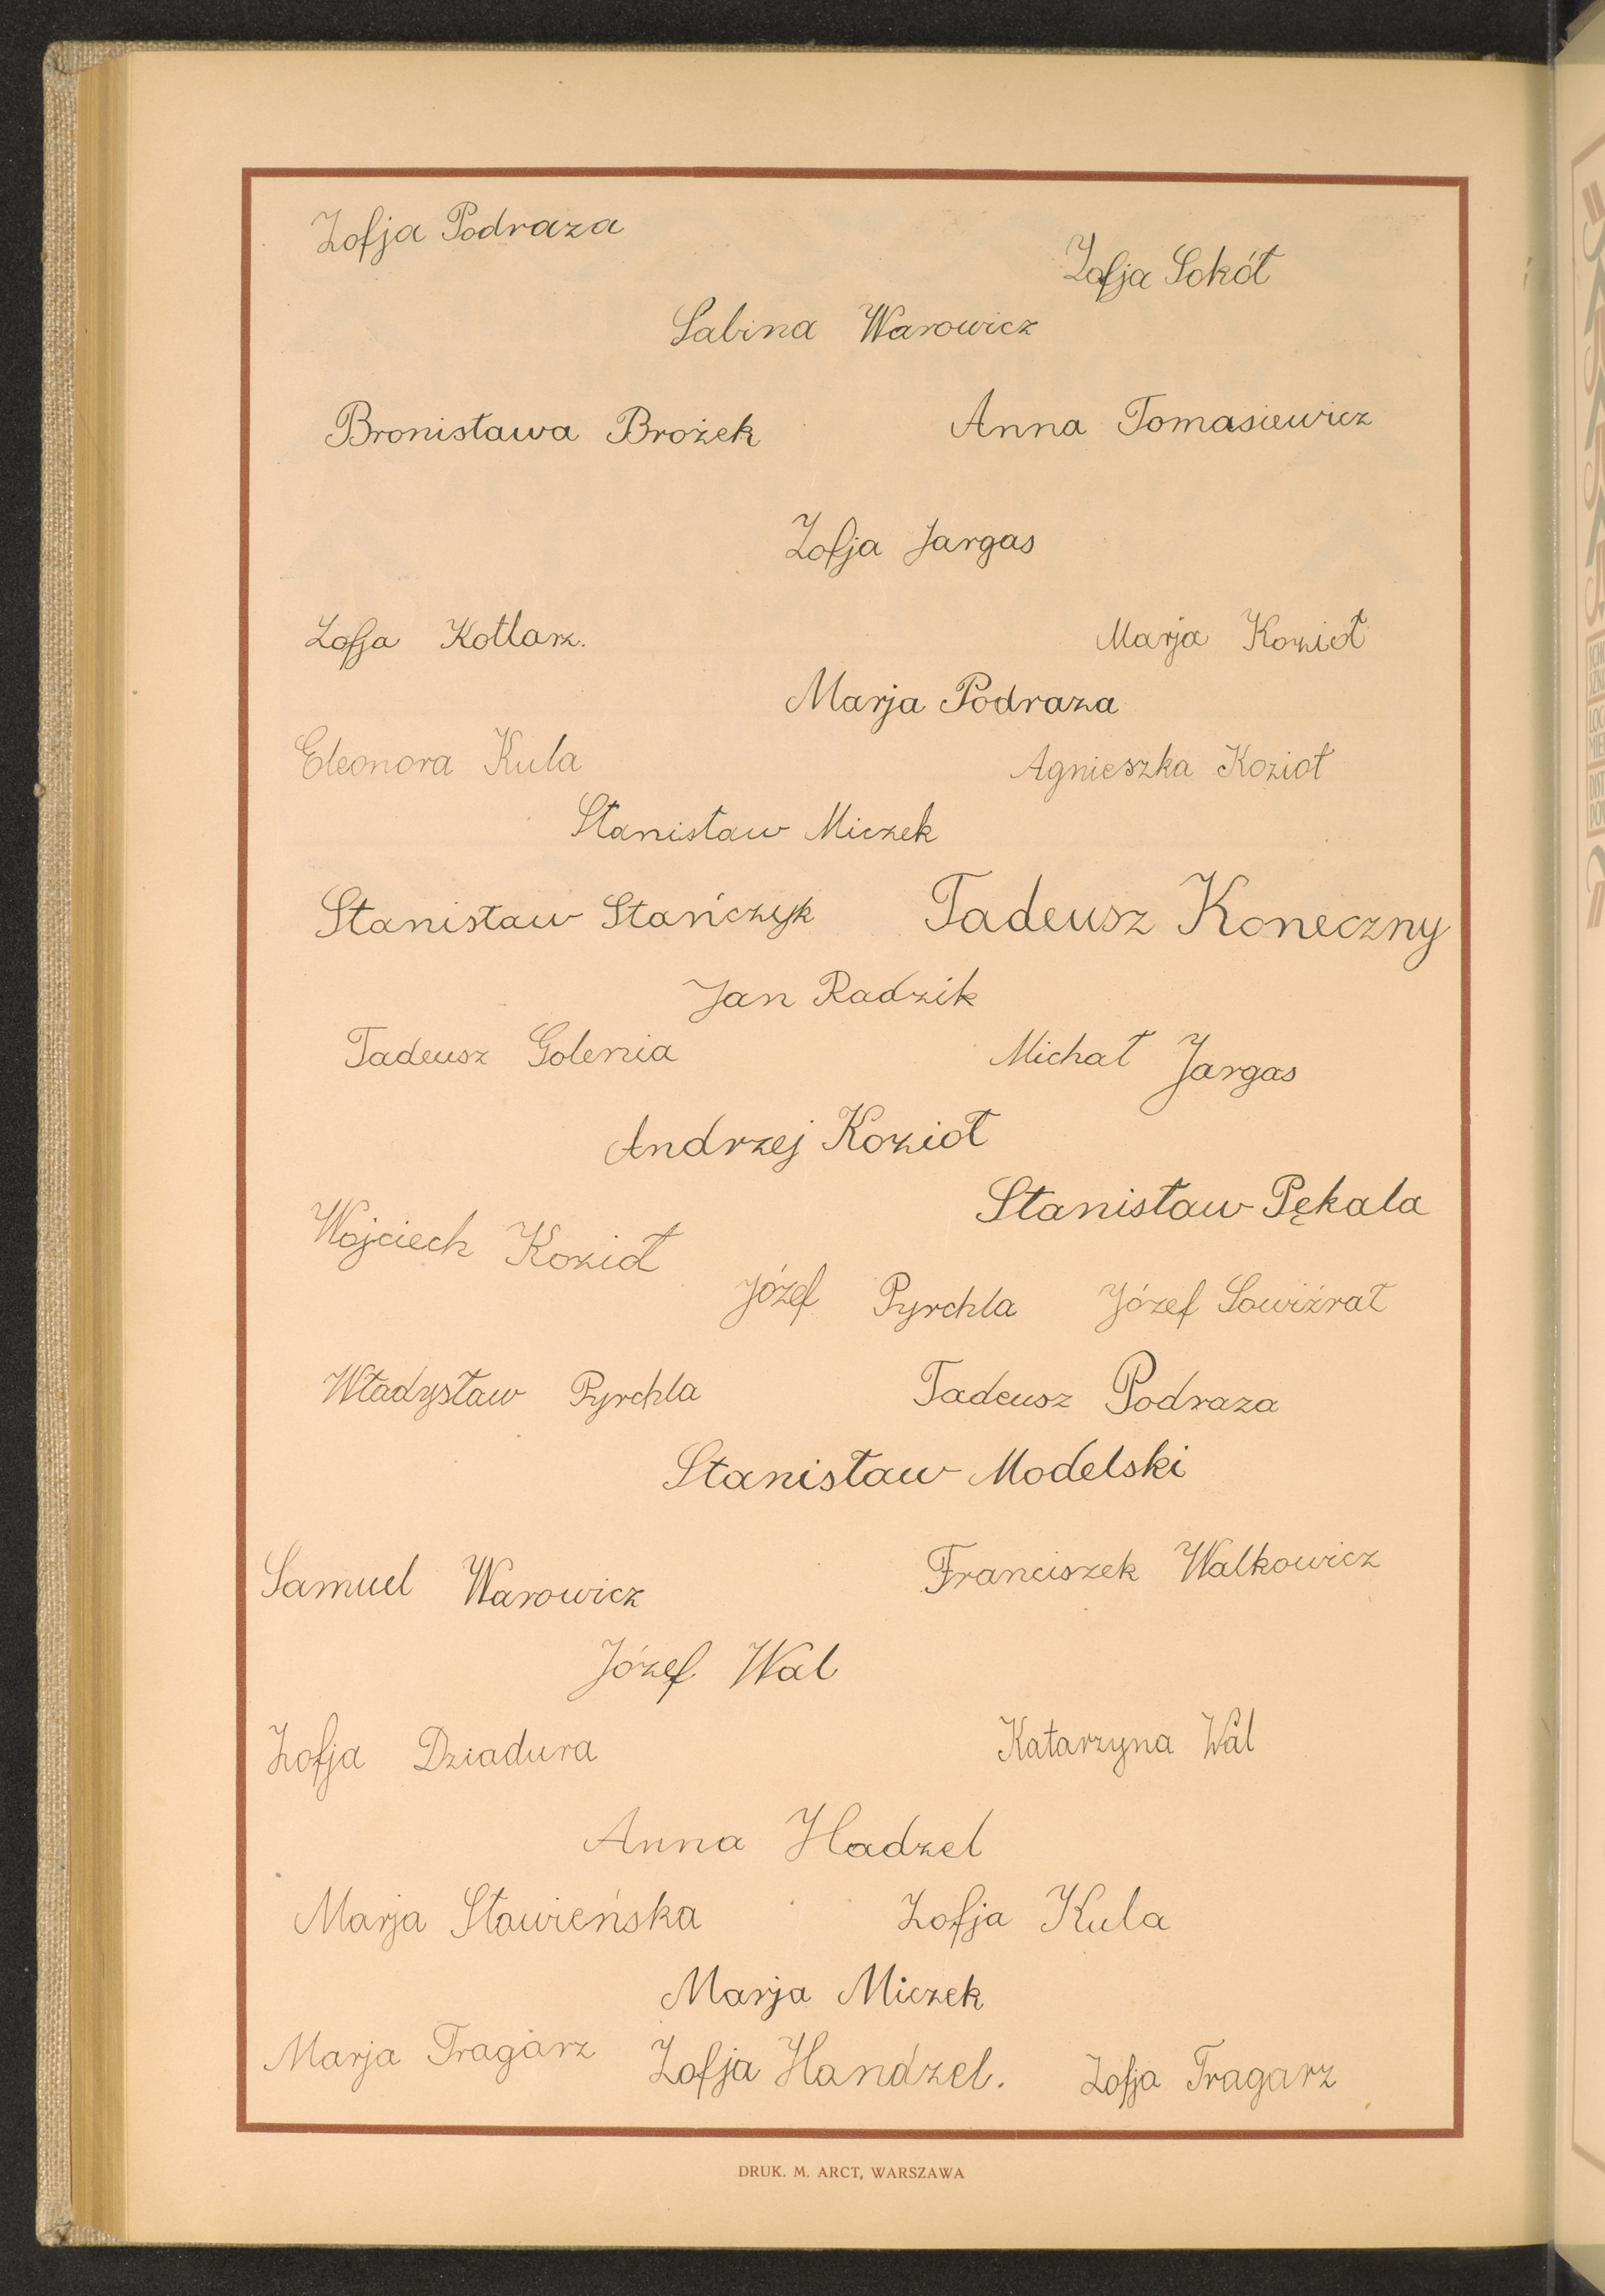 Zofja Podraza
Zofja Sokół
Sabina Warowicz
Bronisława Brożek Anna Tomasiewicz
Zofja Jargas
Zofja Kotlarz.
Marja Kozioł
Marja Podraza
Eleonora Kula Agnieszka Kozioł
Stanisław Miczek
Stanisław Stańczyk Tadeusz Koneczny
Jan Radzik
Tadeusz Golenia Michał Jargas
Andrzej Kozioł
Stanisław Pękala
Wojciech Kozioł
Józef Pyrchla Józef Sowiźrał
Władysław Pyrchla Tadeusz Podraza
Stanisław Modelski
Samuel Warowicz Franciszek Walkowicz
Józef Wal
Zofja Dziadura Katarzyna Wal
Anna Hadzel
Marja Stawieńska Zofja Kula
Marja Miczek
Marja Tragarz Zofja Handzel. Zofja Tragarz
DRUK. M. ARCT, WARSZAWA